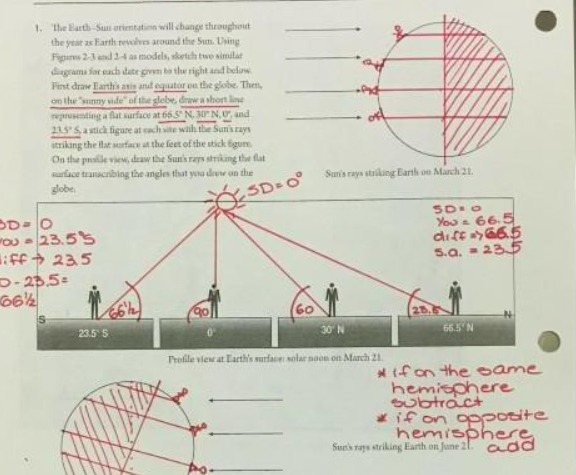 1. The Earth–Sun orientation will change throughout
the year as Earth revolves around the Sun. Using
Figures 2-3 and 2-4 as models, sketch two similar
diagrams for each date given to the right and below.
First draw Earth's axis and equator on the globe. Then,
on the "sunny side" of the globe, draw a short line
representing a flat surface at 66.5° N, 30° N, 0°, and
23.5° S, a stick figure at each site with the Sun's rays
striking the flat surface at the feet of the stick figure.
On the profile view, draw the Sun's rays striking the flat
surface transcribing the angles that you drew on the
globe.
Sun's rays striking Earth on March 21.
SD=0°
SD= 0
You = 23.5°S
diff → 23.5
0-23.5=
66½
SD= 0
You = 66.5
diff => 66.5
S.a. = 23.5
66½
90
60
23.5
S
N
23.5° S
0°
30° N
66.5° N
Profile view at Earth's surface: solar noon on March 21.
* if on the same
hemisphere
subtract
* if on opposite
hemisphere
add
Sun's rays striking Earth on June 21.